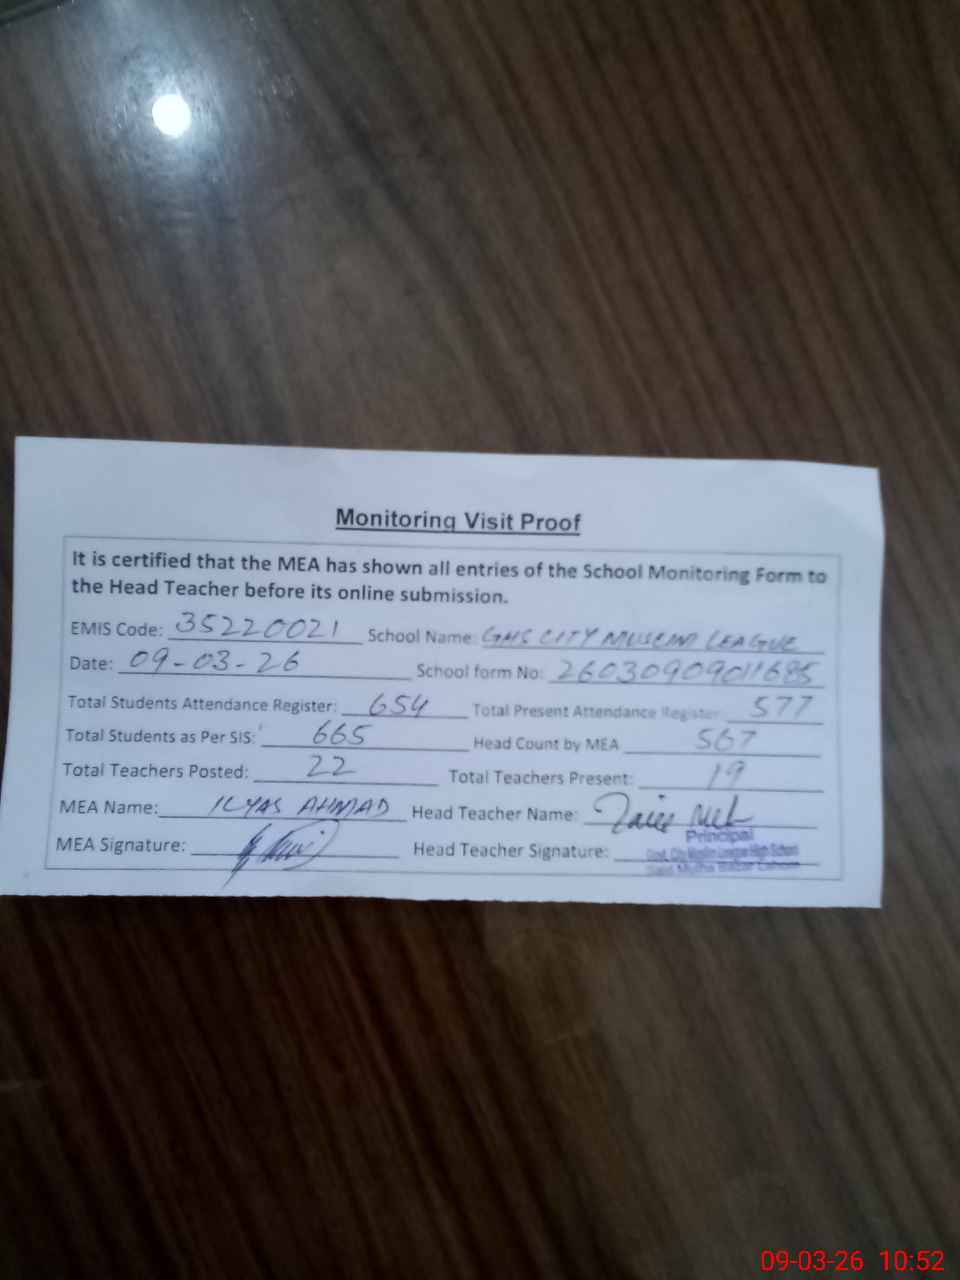 Monitoring Visit Proof
It is certified that the MEA has shown all entries of the School Monitoring Form to
the Head Teacher before its online submission.
EMIS Code: 35220021 School Name: GHS CITY MUSLIM LEAGUE
Date: 09-03-26 School form No: 26030909011685
Total Students Attendance Register: 654 Total Present Attendance Register: 577
Total Students as Per SIS: 665 Head Count by MEA 567
Total Teachers Posted: 22 Total Teachers Present: 19
MEA Name: ILYAS AHMAD Head Teacher Name:
Principal
MEA Signature: Head Teacher Signature:
Govt. City Muslim League High School
Lahore
09-03-26 10:52